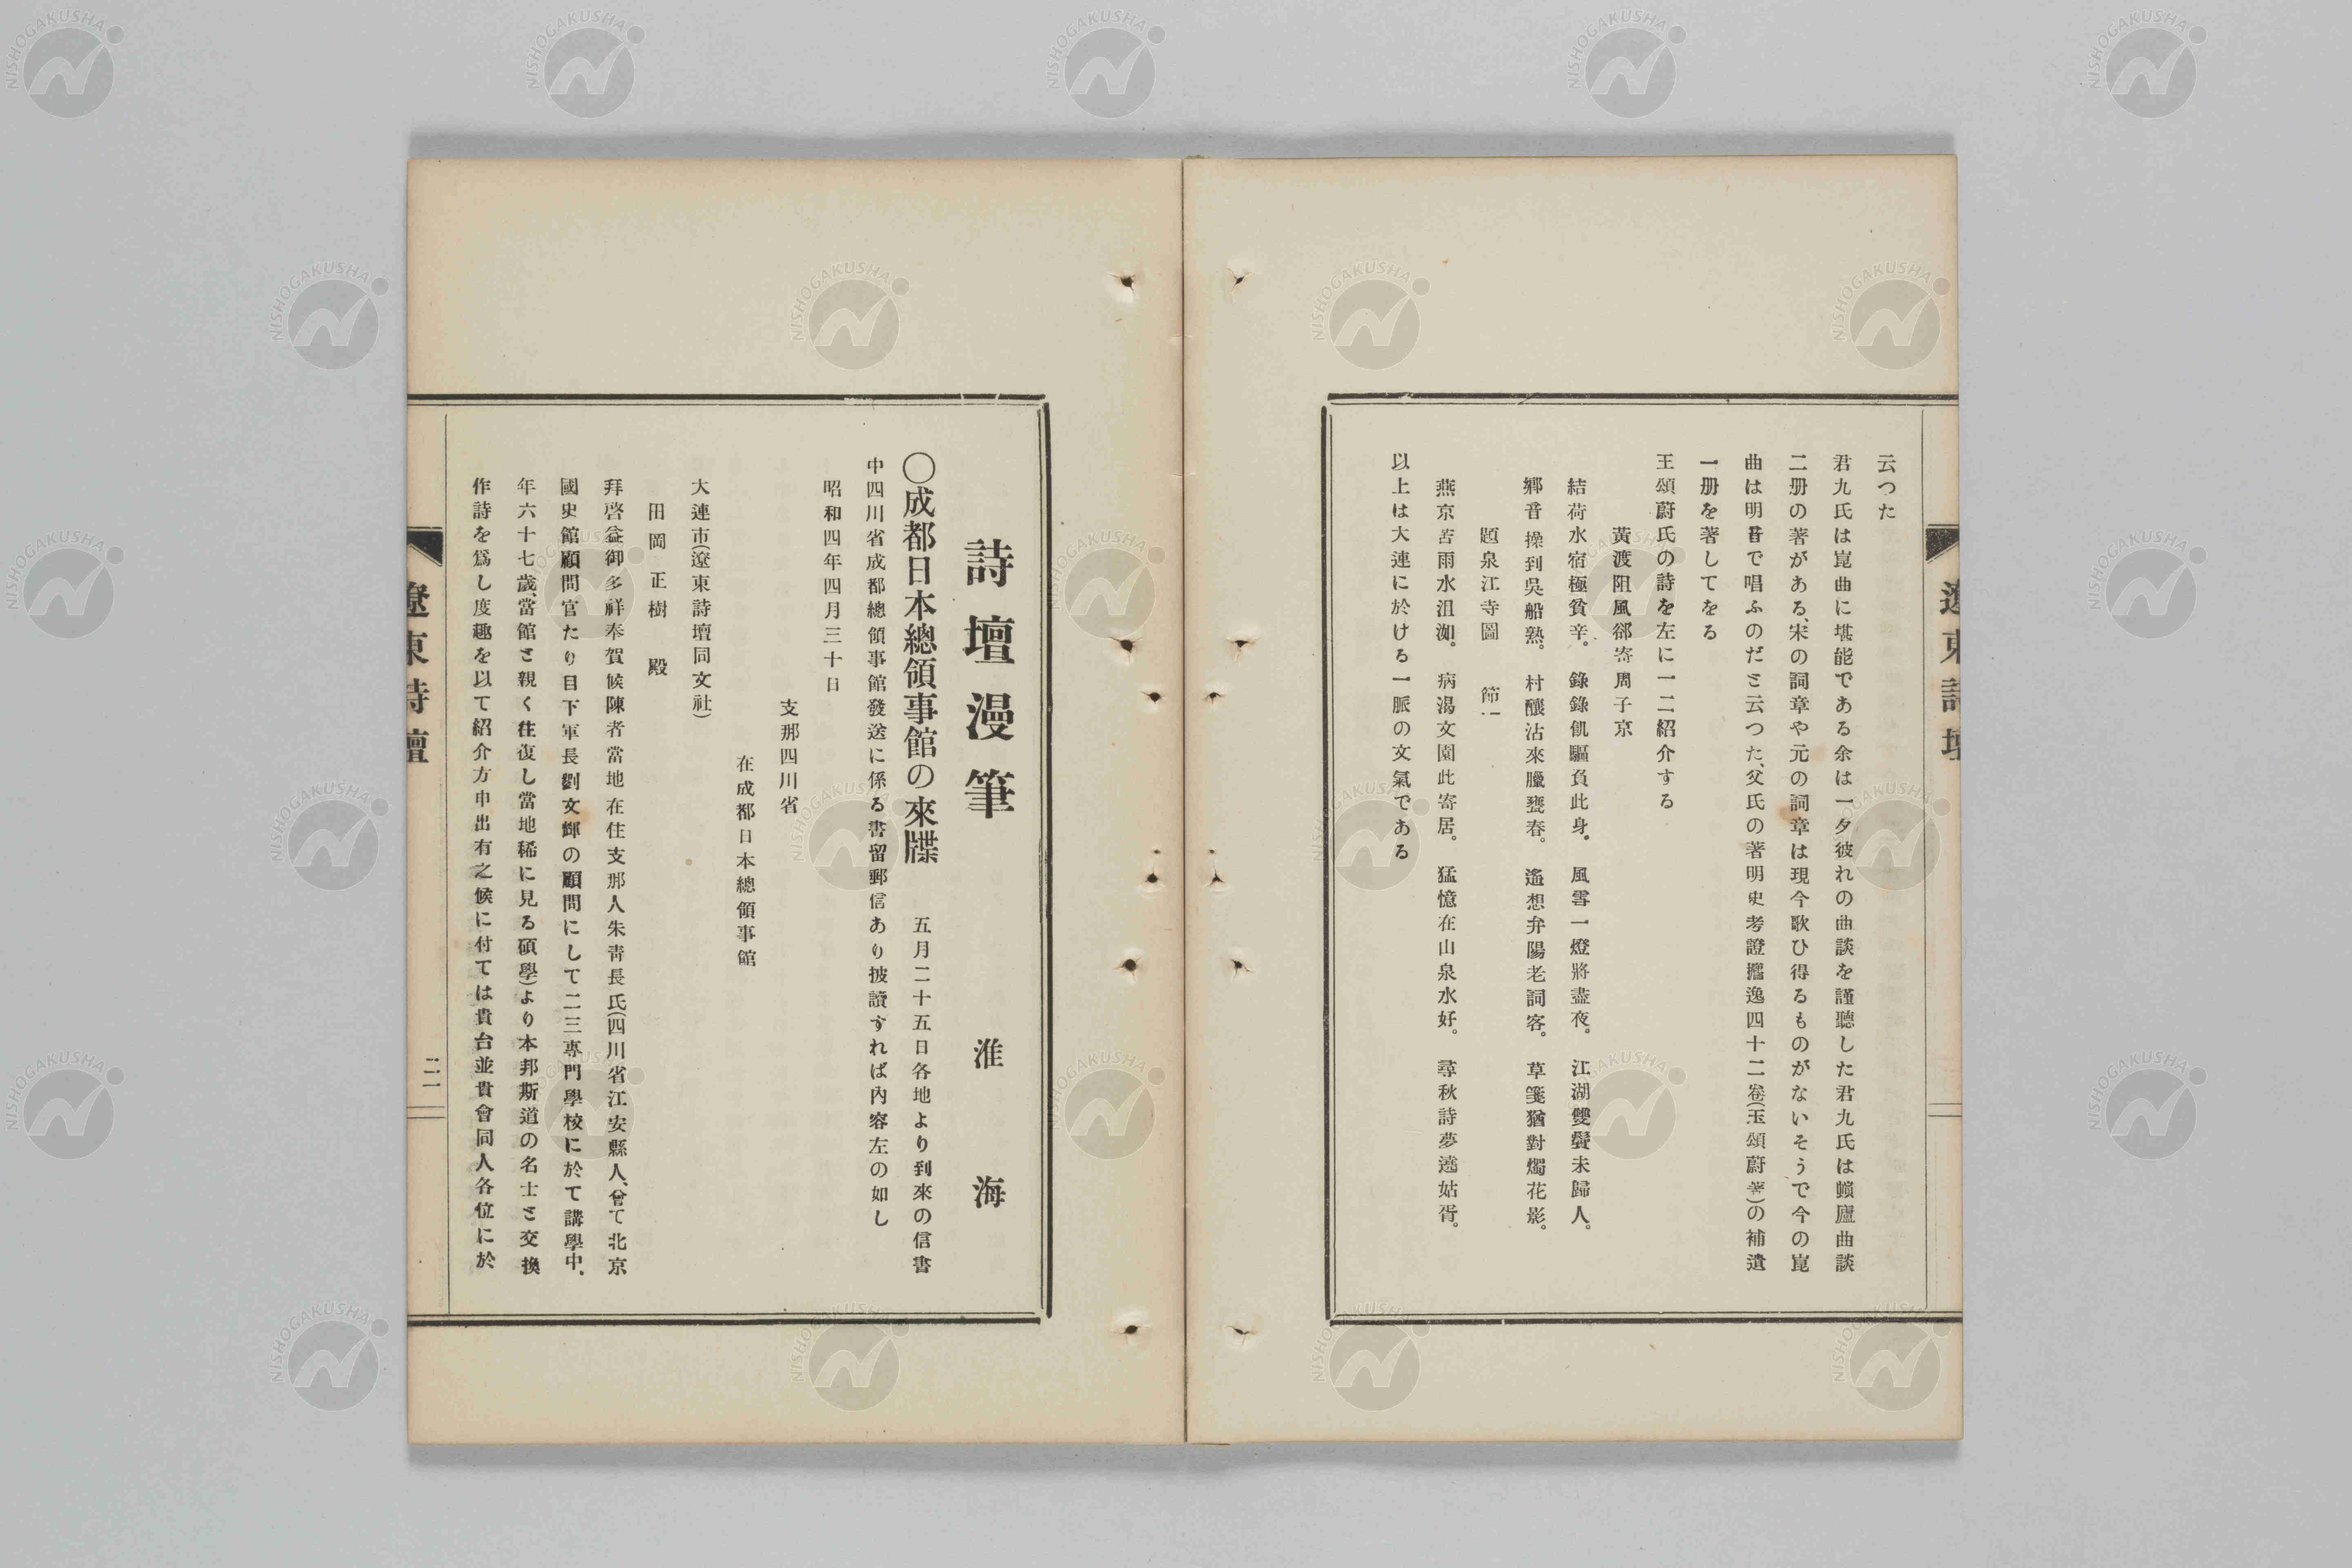 遼東詩壇
云つた
君九氏は崑曲に堪能である余は一夕彼れの曲談を謹聽した君九氏は螾廬曲談
二册の著がある、宋の詞章や元の詞章は現今歌ひ得るものがないそうで今の崑
曲は明音で唱ふのだと云つた、父氏の著明史考證攟逸四十二卷(王頌蔚著)の補遺
一册を著してをる
王頌蔚氏の詩を左に一二紹介する
黃渡阻風郤寄周子京
結荷水宿極貧辛。 錄錄飢驅負此身。 風雪一燈將盡夜。 江湖雙鬢未歸人。
鄉音操到吳船熟。 村釀沽來臘甕春。 遙想弁陽老詞客。 草箋猶對燭花影。
題泉江寺圖 節一
燕京苦雨水沮洳。 病渴文園此寄居。 猛憶在山泉水好。 尋秋詩夢遶姑胥。
以上は大連に於ける一脈の文氣である
詩壇漫筆 淮海
〇成都日本總領事館の來牒 五月二十五日各地より到來の信書
中四川省成都總領事館發送に係る書留郵信あり披讀すれば內容左の如し
昭和四年四月三十日
支那四川省
在成都日本總領事館
大連市(遼東詩壇同文社)
田岡正樹 殿
拜啓益御多祥奉賀候陳者當地在住支那人朱靑長氏(四川省江安縣人、曾て北京
國史館顧問官たり目下軍長劉文輝の顧問にして二三專門學校に於て講學中、
年六十七歲、當館と親く往復し當地稀に見る碩學)より本邦斯道の名士と交換
作詩を爲し度趣を以て紹介方申出有之候に付ては貴台並貴會同人各位に於
遼東詩壇
二一
NISHOGAKUSHA